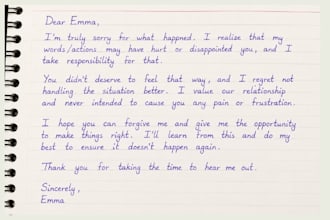 Dear Emma,
I'm truly sorry for what happned. I realize that my
words/actions may have hurt or disappointed you, and I
take responsibility for that.
You didn't deserve to feel that way, and I regret not
handling the situation better. I value our relationship
and never intended to cause you any pain or frustration.
I hope you can forgive me and give me the opportunity
to make things right. I'll learn from this and do my
best to ensure it doesn't happen again.
Thank you for taking the time to hear me out.
Sincerely,
Emma